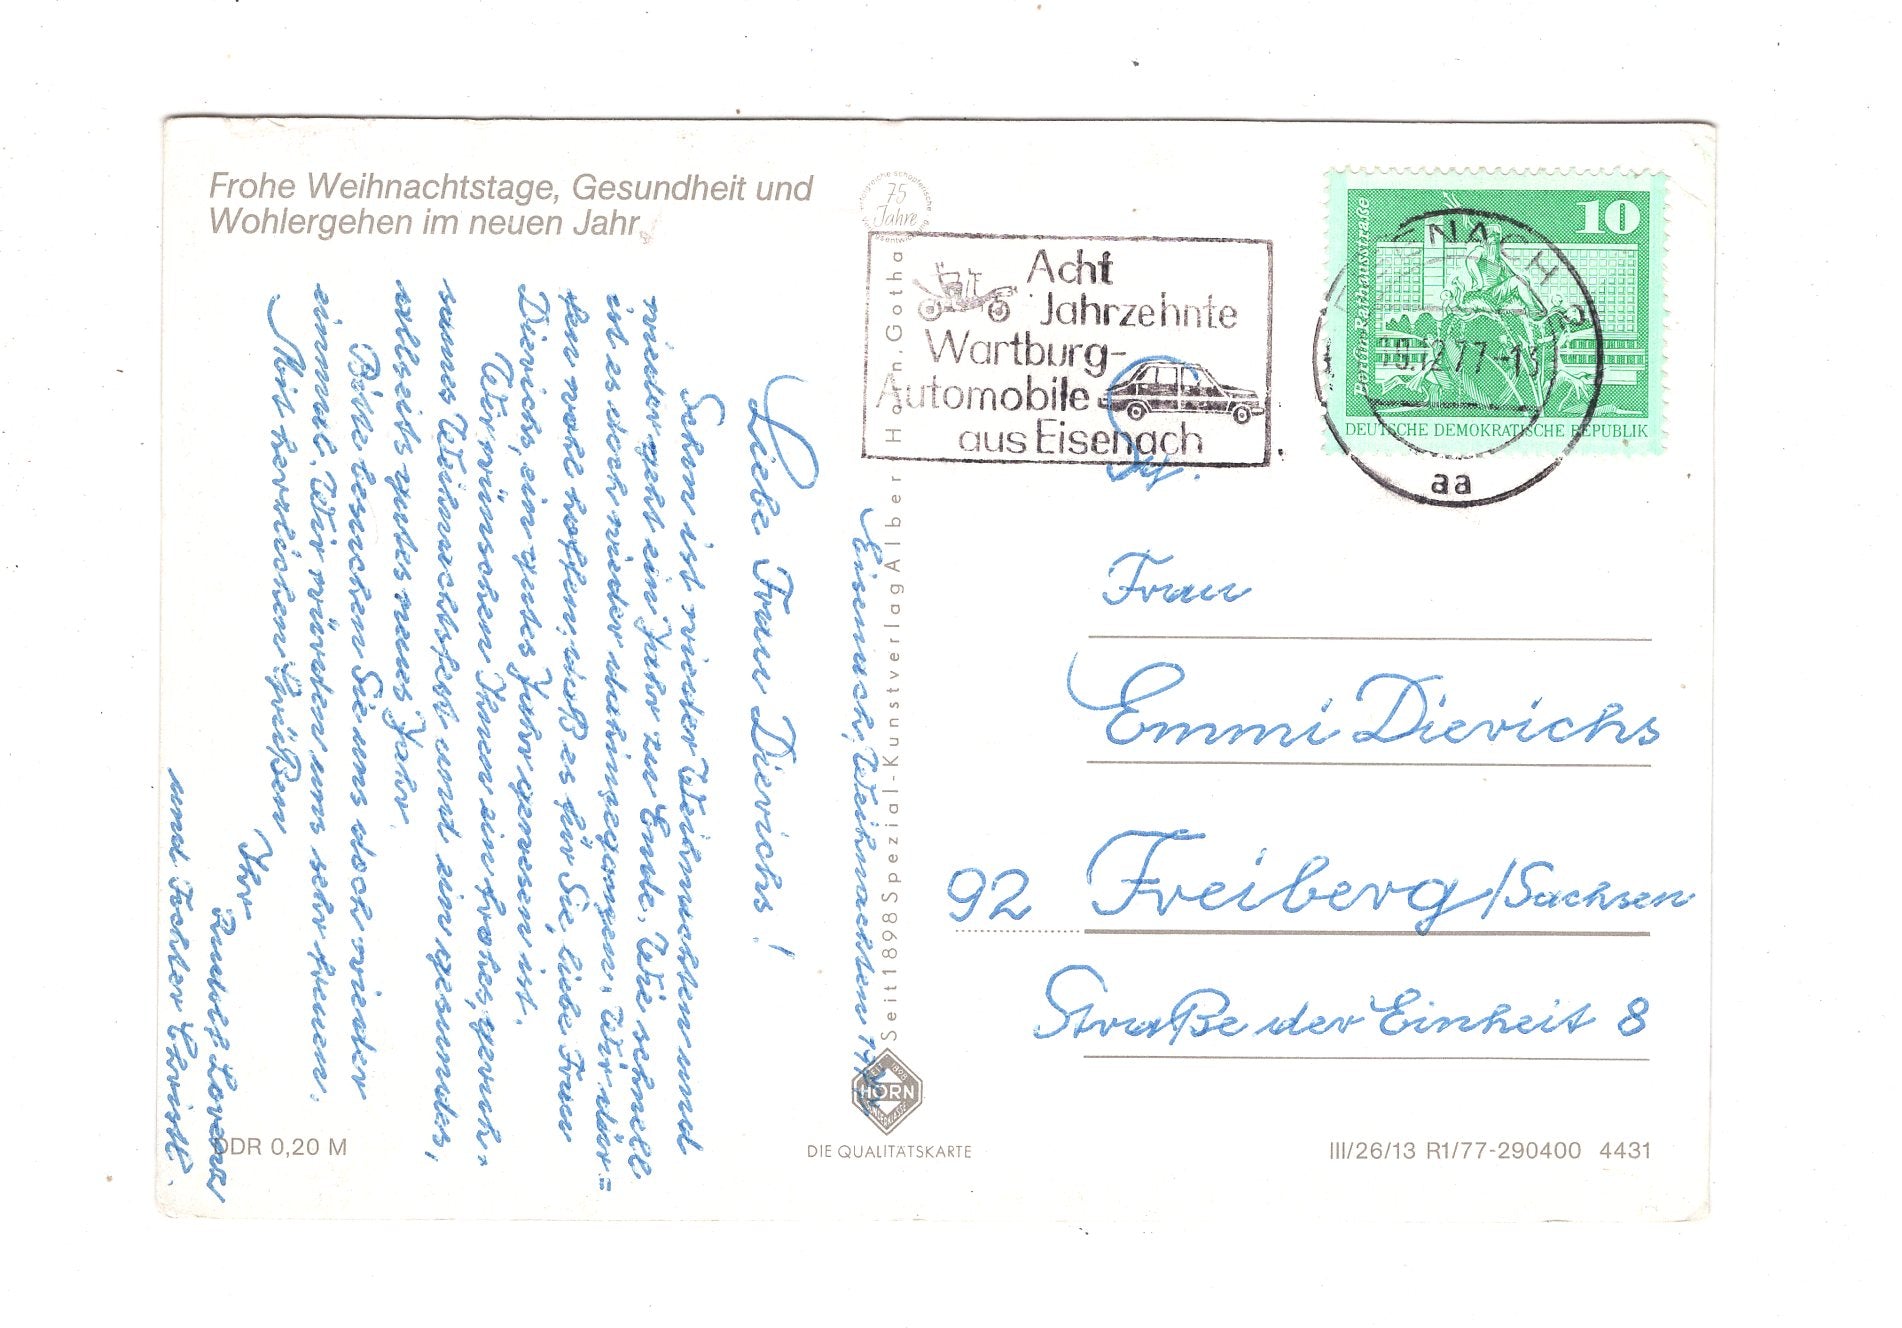 Frohe Weihnachtstage, Gesundheit und
Wohlergehen im neuen Jahr
Eisenach, Weihnachten 1977
Liebe Frau Dierichs!
Schon ist wieder Weihnachten und
wieder geht ein Jahr zu Ende. Wie schnell
ist es doch wieder dahingegangen. Wir dür=
fen wohl hoffen, daß es für Sie, liebe Frau
Dierichs, ein gutes Jahr gewesen ist.
Wir wünschen Ihnen ein frohes, geruh-
sames Weihnachtsfest und ein gesundes,
allseits gutes neues Jahr.
Bitte besuchen Sie uns doch wieder
einmal. Wir würden uns sehr freuen.
Mit herzlichen Grüßen
Ihr
Rudolf Lorenz
und Tochter Christl.
DDR 0,20 M
75
Jahre
Seit 1898 Spezial-Kunstverlag Alber Horn, Gotha
SEIT 1898
HORN
DIE QUALITÄTSKARTE
Acht
Jahrzehnte
Wartburg-
Automobile
aus Eisenach
10
Berlin · Rathausstraße
DEUTSCHE DEMOKRATISCHE REPUBLIK
EISENACH
12.77-13
aa
Frau
Emmi Dierichs
92 Freiberg/Sachsen
Straße der Einheit 8
III/26/13 R1/77-290400 4431